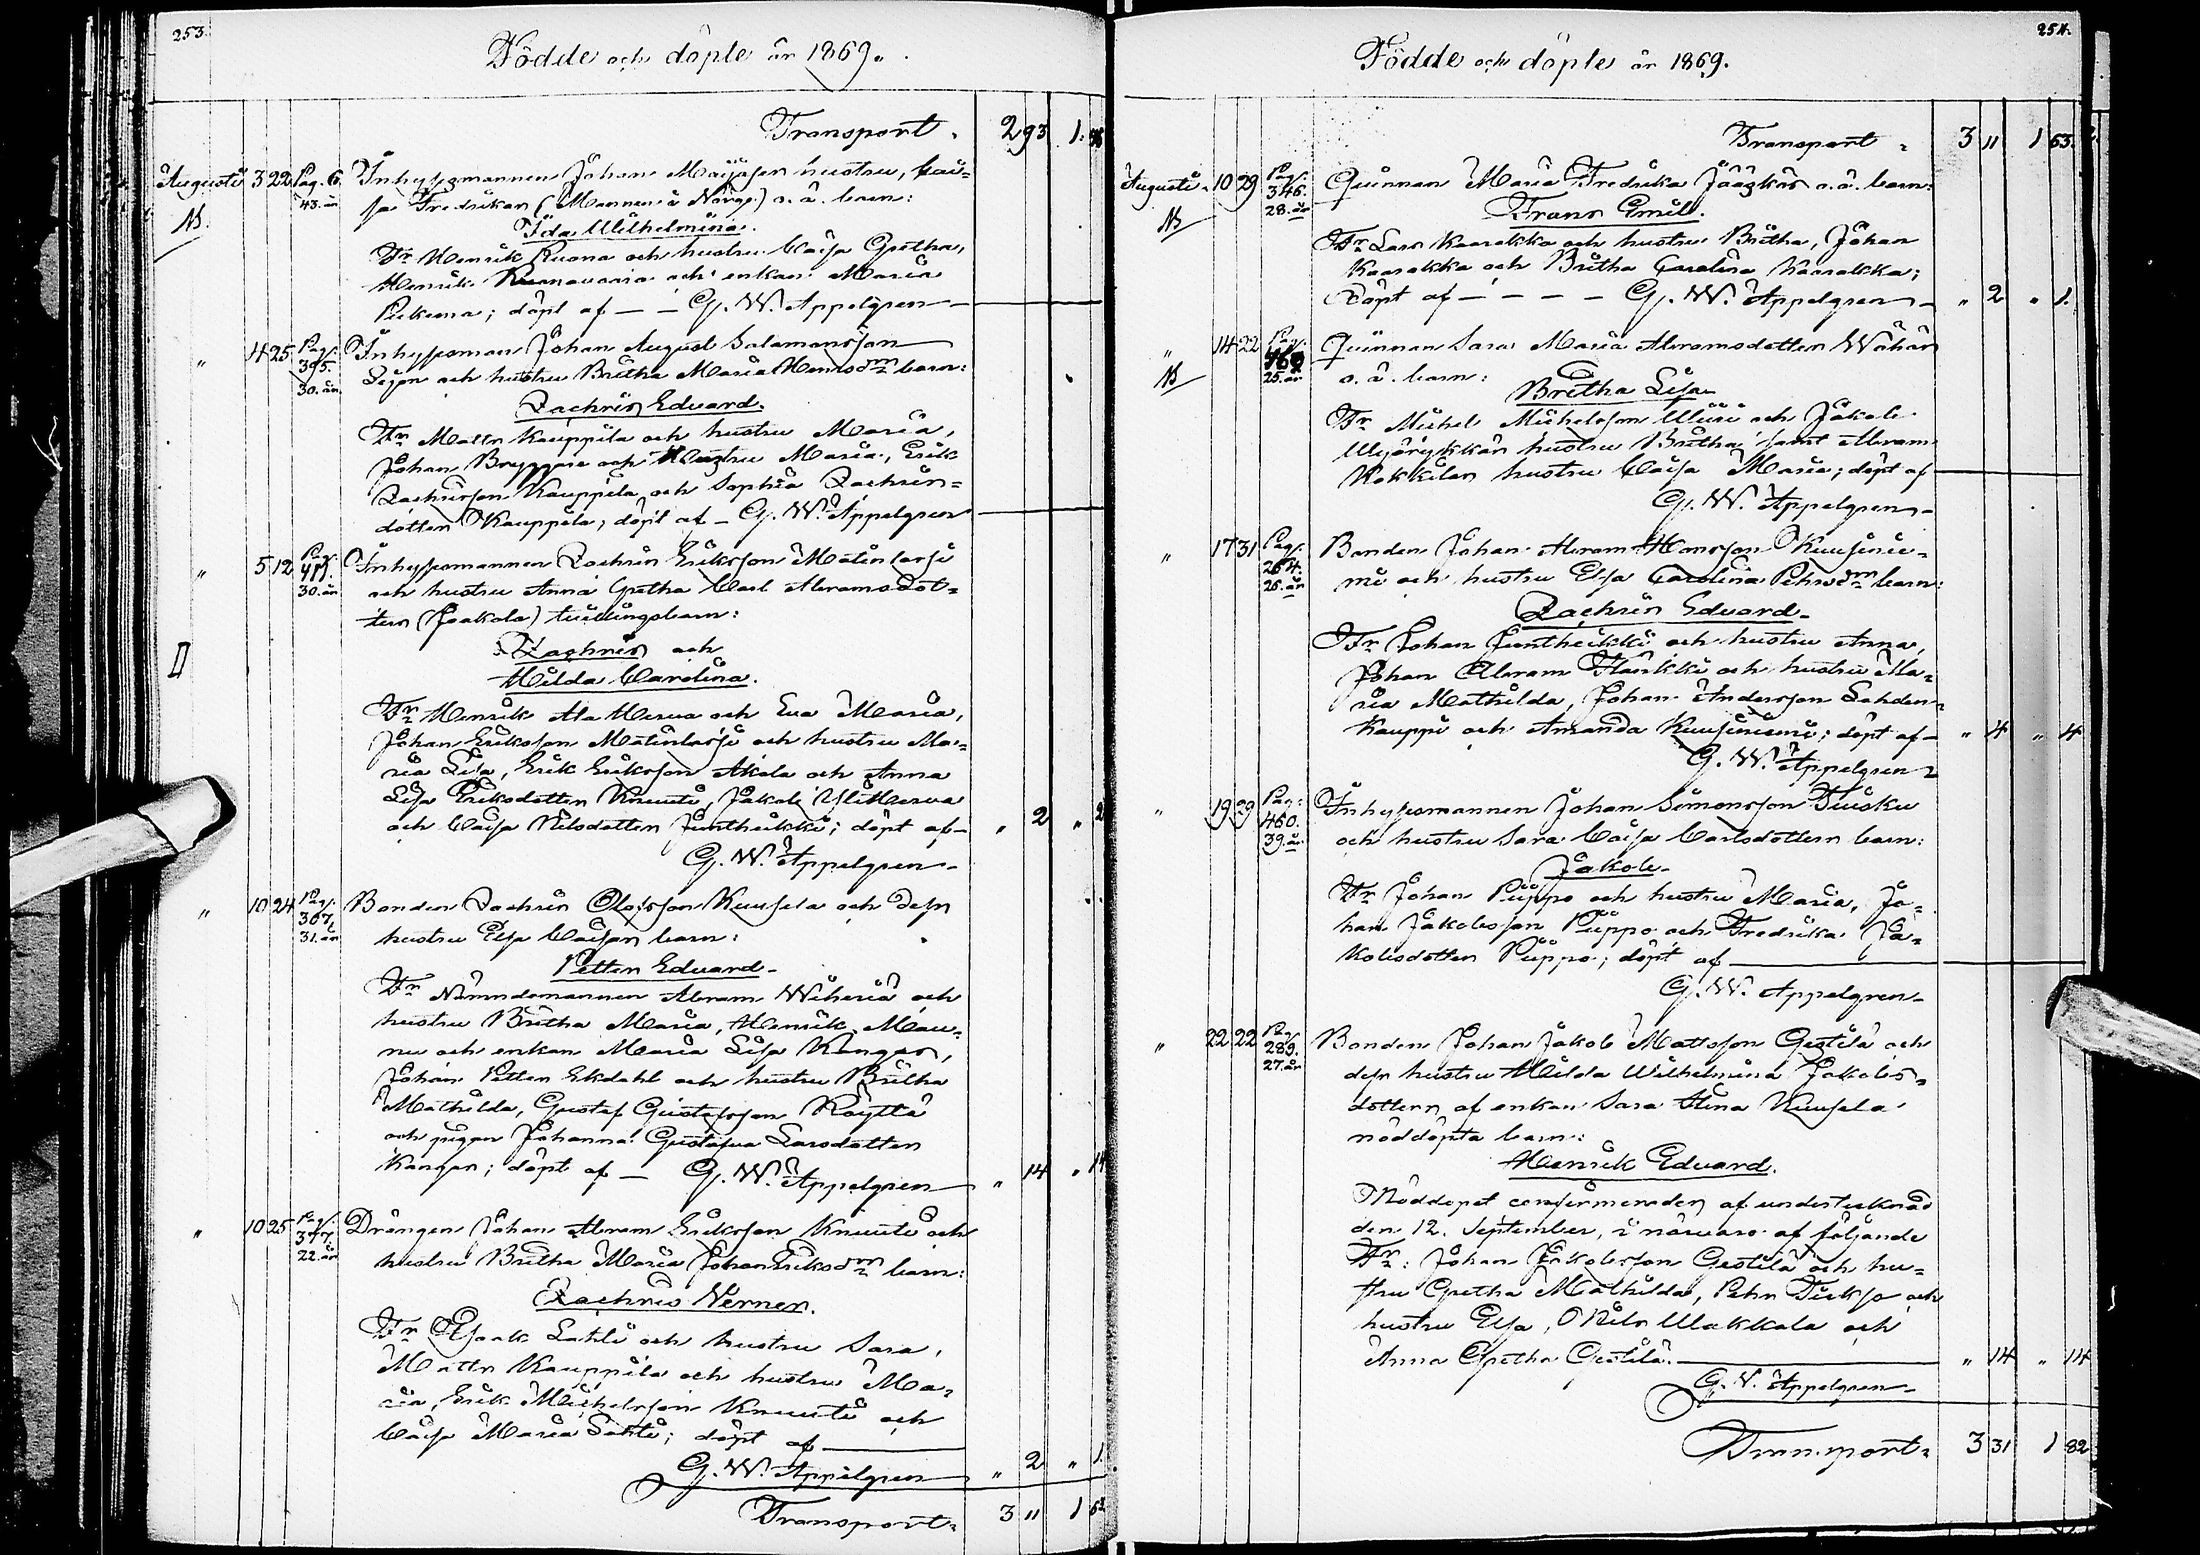 253.
Födde och döpte år 1869.
Transport. 293 1.
Augusti 3 22 Pag. 6. Inhysesmannen Johan hustru, Cai-
43. år sa Fredrikas (Mannen i Norge) o. ä. barn:
NB. Ida Wilhelmina.
Fr Henrik Ruona och hustru Caisa Gretha,
Henrik och enkan Maria
; döpt af — — G. W. Appelgren —
" 4 25 Pag. 395. Inhysesman Johan August Salamonsson
30. år och hustru Britha Maria Henrsdrn barn:
Zachris Eduard.
Fr Matts Kauppila och hustru Maria,
Johan Bryggare och hustru Maria, Erik
Zachrisson Kauppila och Sophia Zachris-
dotter Kauppila, döpt af — G. W. Appelgren
" 5 12 Pag. Inhysesmannen Zachris Eriksson Matinlassi
30. år och hustru Anna Gretha Carl Abramsdot-
ters (Jaakola) tvillingsbarn:
Zachris och
Hilda Carolina.
Fr Henrik Ala Herva och Eva Maria,
Johan Eriksson Matinlassi och hustru Ma-
ria Lisa, Erik Eriksson Akola och Anna
Lisa Eriksdotter Knuuti, Jakob Yli Herva
och Caisa Nilsdotter Juntheikki; döpt af — " 2 " 2
G. W. Appelgren —
" 10 24 Pag. 367. Bonden Zachris Olofsson Kuusela och dess
31. år hustru Elsa Caisas barn:
Petter Eduard —
Fr Nämndemannen Abram Wiheriä och
hustru Britha Maria, Henrik Mau-
nu och enkan Maria Lisa Kangas,
Johan Petter Ekdahl och hustru Britha
Mathilda, Gustaf Gustafsson Köyttä
och pigan Johanna Gustafva Larsdotter
Kangas; döpt af — G. W. Appelgren — " 14 " 14
" 10 25 Pag. 347. Drängen Johan Abram Eriksson Knuuti och
22. år hustru Britha Maria Johan Eriksdrn barn:
Zachris Verner.
Fr Isaak Lahti och hustru Sara,
Matts Kauppila och hustru Ma-
ria, Erik Michelsson Knuuti och
Caisa Maria Lahti; döpt af —
G. W. Appelgren — " 2 " 1.
Transport. 3 11 1 63
254.
Födde och döpte år 1869.
Transport. 3 11 1 63.
Augusti 10 29 Pag. 346. Qvinnan Maria Fredrika Jääskäs o. ä. barn:
NB 28. år Frans Emil.
Fr Lars Kaarakka och hustru Britha, Johan
Kaarakka och Britha Carolina Kaarakka;
döpt af — — — — G. W. Appelgren — " 2 " 1.
" 14 22 Pag. Qvinnan Sara Maria Abramsdotter Wähäs
NB 25. år o. ä. barn:
Britha Lisa —
Fr Michel Michelsson och Jakob
hustru Britha samt Abram
hustru Caisa Maria; döpt af —
G. W. Appelgren —
" 17 31 Pag. 264. Bonden Johan Abram Hansson Kuusinie-
26. år mi och hustru Elsa Carolina Pehrsdrn barn:
Zachris Eduard —
Fr Johan Juntheikki och hustru Anna,
Johan Abram Haikki och hustru Ma-
ria Mathilda, Johan Andersson Lahden-
kauppi och Amanda Kuusiniemi; döpt af — " 4 " 4
G. W. Appelgren —
" 19 29 Pag. 460. Inhysesmannen Johan Simonsson Tiusku
39. år och hustru Sara Caisa Carlsdotters barn:
Jakob —
Fr Johan Piippo och hustru Maria, Jo-
han Jakobsson Piippo och Fredrika Ja-
kobsdotter Piippo; döpt af —
G. W. Appelgren —
" 22 22 Pag. 289. Bonden Johan Jakob Mattsson Gestilä och
27. år dess hustru Hilda Wilhelmina Jakobs-
dotters, af enkan Sara Stina Kuusela
nöddöpta barn:
Henrik Eduard.
Nöddopet confirmerades af undertecknad
den 12. September, i närvaro af följande
Fr: Johan Jakobsson Gestilä och hu-
stru Gretha Mathilda, Pehr och
hustru Elsa, Nils Wakkala och
Anna Gretha Gestilä. — " 14 " 14
G. W. Appelgren —
Transport. 3 31 1 82